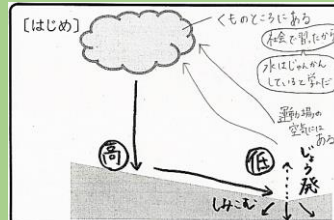 [はじめ]
くものところにある
社会で習ったから
水はじゅんかん
していると学んだ
運動場の
空気には
ある
高
低
じょう発
しみこむ